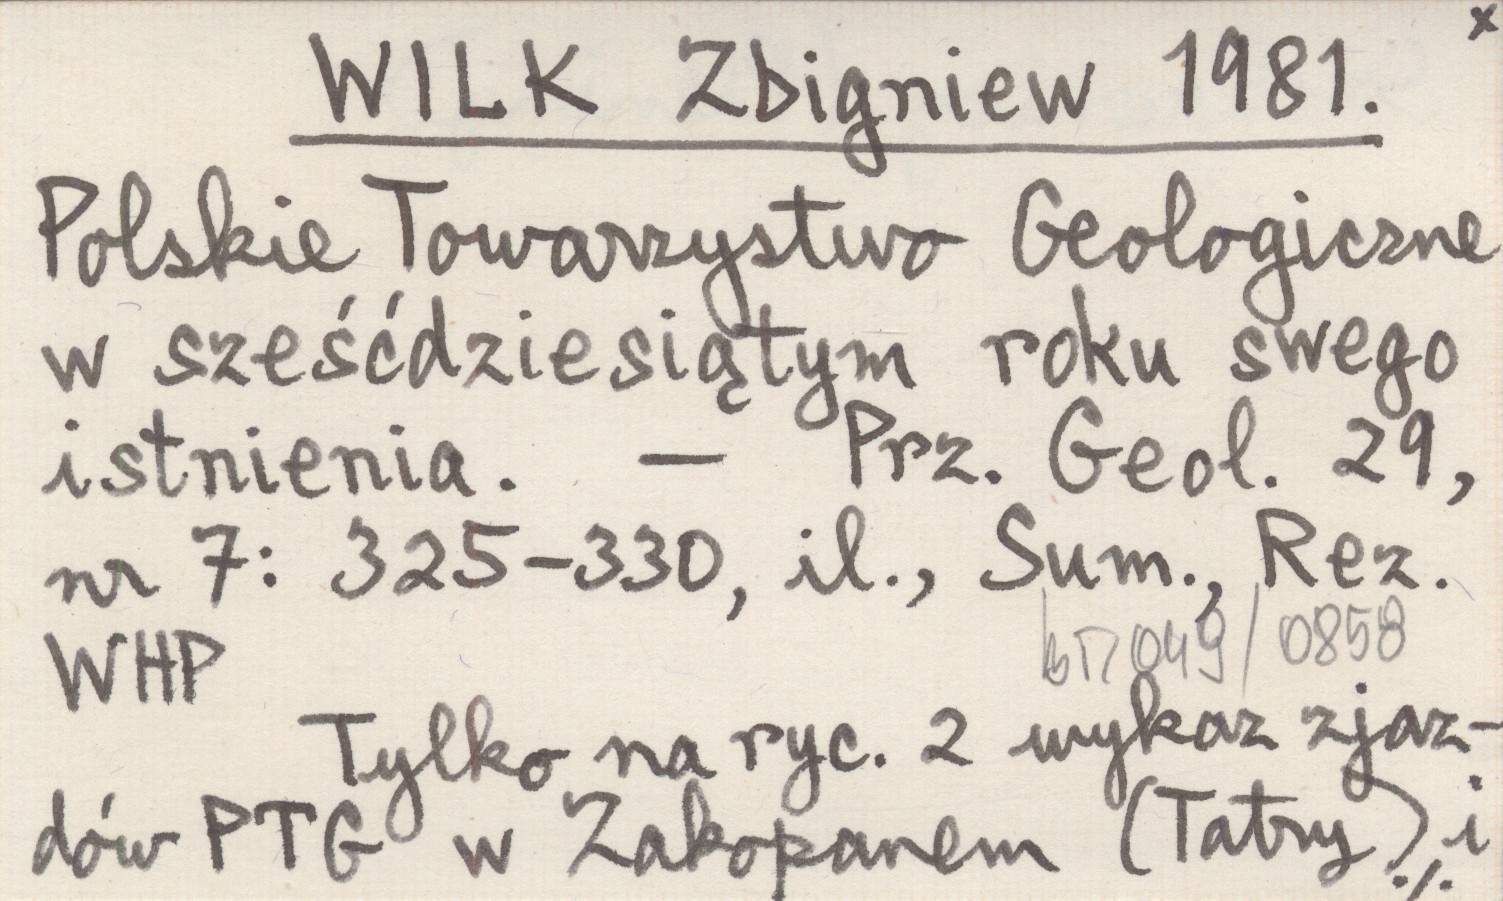 x
WILK Zbigniew 1981.
Polskie Towarzystwo Geologiczne
w sześćdziesiątym roku swego
istnienia. — Prz. Geol. 29,
nr 7: 325-330, il., Sum., Rez.
WHP
049/0858
Tylko na ryc. 2 wykaz zjaz-
dów PTG w Zakopanem (Tatry) i
./.